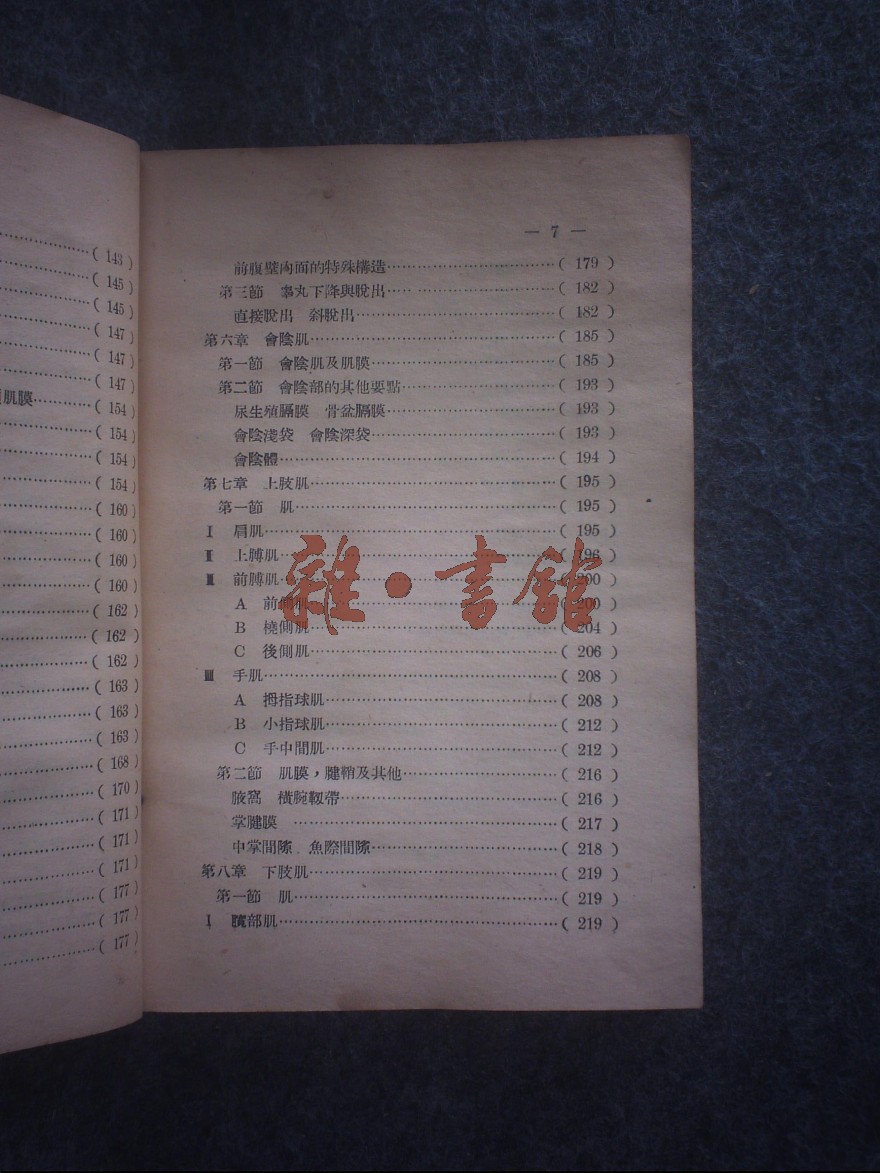 ( 143 )
( 145 )
( 145 )
( 147 )
( 147 )
( 147 )
肌膜 ( 154 )
( 154 )
( 154 )
( 154 )
( 160 )
( 160 )
( 160 )
( 160 )
( 162 )
( 162 )
( 162 )
( 163 )
( 163 )
( 163 )
( 168 )
( 170 )
( 171 )
( 171 )
( 171 )
( 177 )
( 177 )
( 177 )
— 7 —
前腹壁內面的特殊構造……( 179 )
第三節 睾丸下降與脫出……( 182 )
直接脫出 斜脫出……( 182 )
第六章 會陰肌……( 185 )
第一節 會陰肌及肌膜……( 185 )
第二節 會陰部的其他要點……( 193 )
尿生殖膈膜 骨盆膈膜……( 193 )
會陰淺袋 會陰深袋……( 193 )
會陰體……( 194 )
第七章 上肢肌……( 195 )
第一節 肌……( 195 )
Ⅰ 肩肌……( 195 )
Ⅱ 上膊肌……( 196 )
Ⅲ 前膊肌……( 200 )
A 前側肌……( 200 )
B 橈側肌……( 204 )
C 後側肌……( 206 )
Ⅲ 手肌……( 208 )
A 拇指球肌……( 208 )
B 小指球肌……( 212 )
C 手中間肌……( 212 )
第二節 肌膜，腱鞘及其他……( 216 )
腋窩 橫腕韌帶……( 216 )
掌腱膜……( 217 )
中掌間隙 魚際間隙……( 218 )
第八章 下肢肌……( 219 )
第一節 肌……( 219 )
Ⅰ 臗部肌……( 219 )
雜·書館